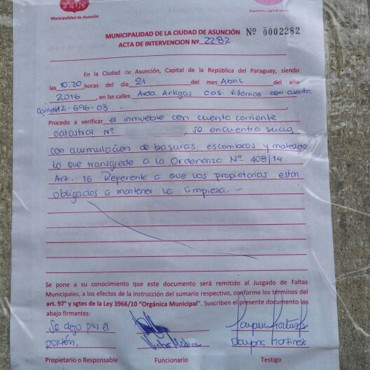 Municipalidad de Asunción
MUNICIPALIDAD DE LA CIUDAD DE ASUNCIÓN Nº 0002282
ACTA DE INTERVENCION Nº 2282
En la Ciudad de Asunción, Capital de la República del Paraguay, siendo
las 10:20 horas del día 21 del mes Abril del año
2016 en las calles Avda. Artigas cas
696-03
Procedo a verificar el inmueble con cuenta corriente
catastral Nº se encuentra sucia
con acumulación de basuras, escombros y malezas
lo que transgrede a la Ordenanza Nº 408/14
Art. 16 Referente a que los propietarios están
obligados a mantener la limpieza.
Se pone a su conocimiento que este documento será remitido al Juzgado de Faltas
Municipales, a los efectos de la instrucción del sumario respectivo, conforme los términos del
art. 97º y sgtes de la Ley 3966/10 "Orgánica Municipal". Suscriben el presente documento los
abajo firmantes:
Se dejo en el
portón.
Propietario o Responsable Funcionario Testigo